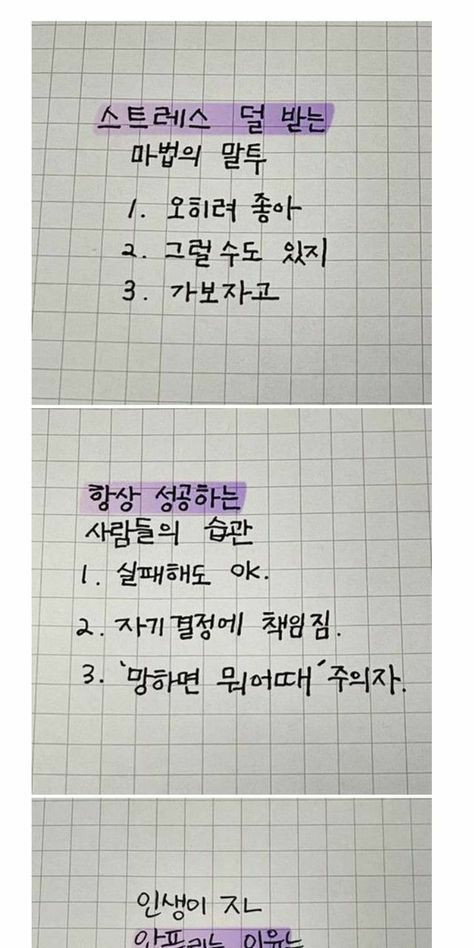 스트레스 덜 받는
마법의 말투
1. 오히려 좋아
2. 그럴 수도 있지
3. 가보자고
항상 성공하는
사람들의 습관
1. 실패해도 OK.
2. 자기 결정에 책임짐.
3. '망하면 뭐어때' 주의자.
인생이 잔
안풀리는 이유는